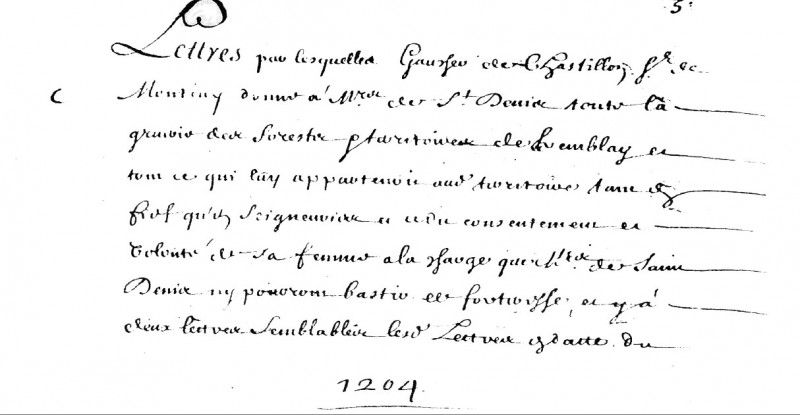 5.
Lettres par lesquelles Gaucher de Chastillon Sr. de
C
Montigny donne a Mrs. de St Denis toute la
gruirie des forests & territoires de Tremblay et
tout ce qui luy appartenoit aud. territoire tant en
fief qu'en Seigneurie et a du consentement et
volonté de sa femme a la charge que Mrs. de Saint
Denis ny pouront bastir de fortresse, et y a
deux lettres semblables lesd. Lettres en datte du
1204.